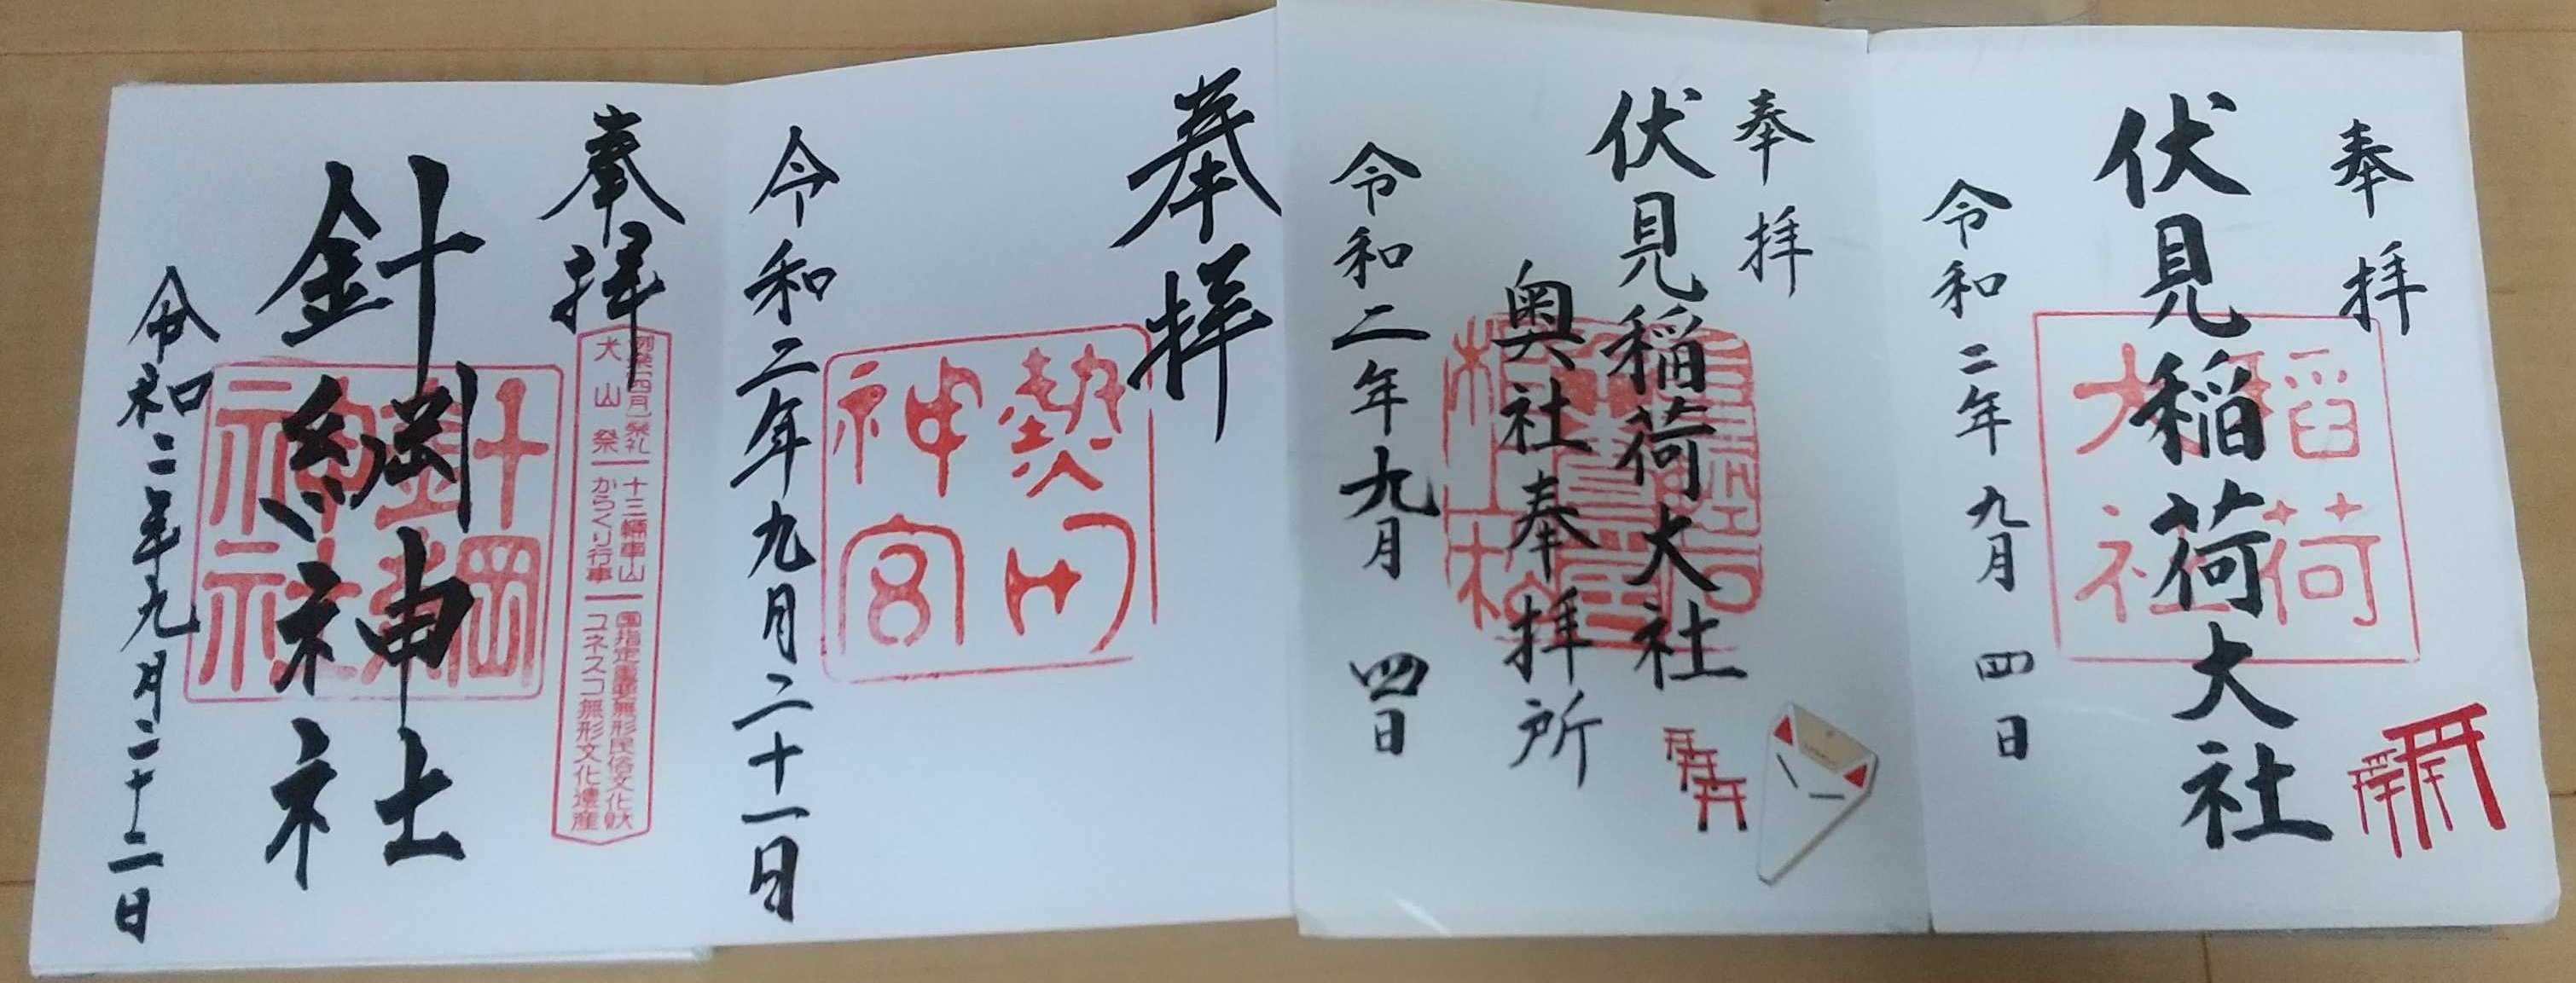 奉拝
伏見稲荷大社
稲荷
大社
令和二年九月四日
奉拝
伏見稲荷大社
奥社奉拝所
令和二年九月四日
奉拝
熱田
神宮
令和二年九月二十一日
奉拝
例祭(四月)祭礼
犬山祭
十三輌車山
からくり行事
国指定重要無形民俗文化財
ユネスコ無形文化遺産
針綱神社
針綱
神社
令和二年九月二十二日